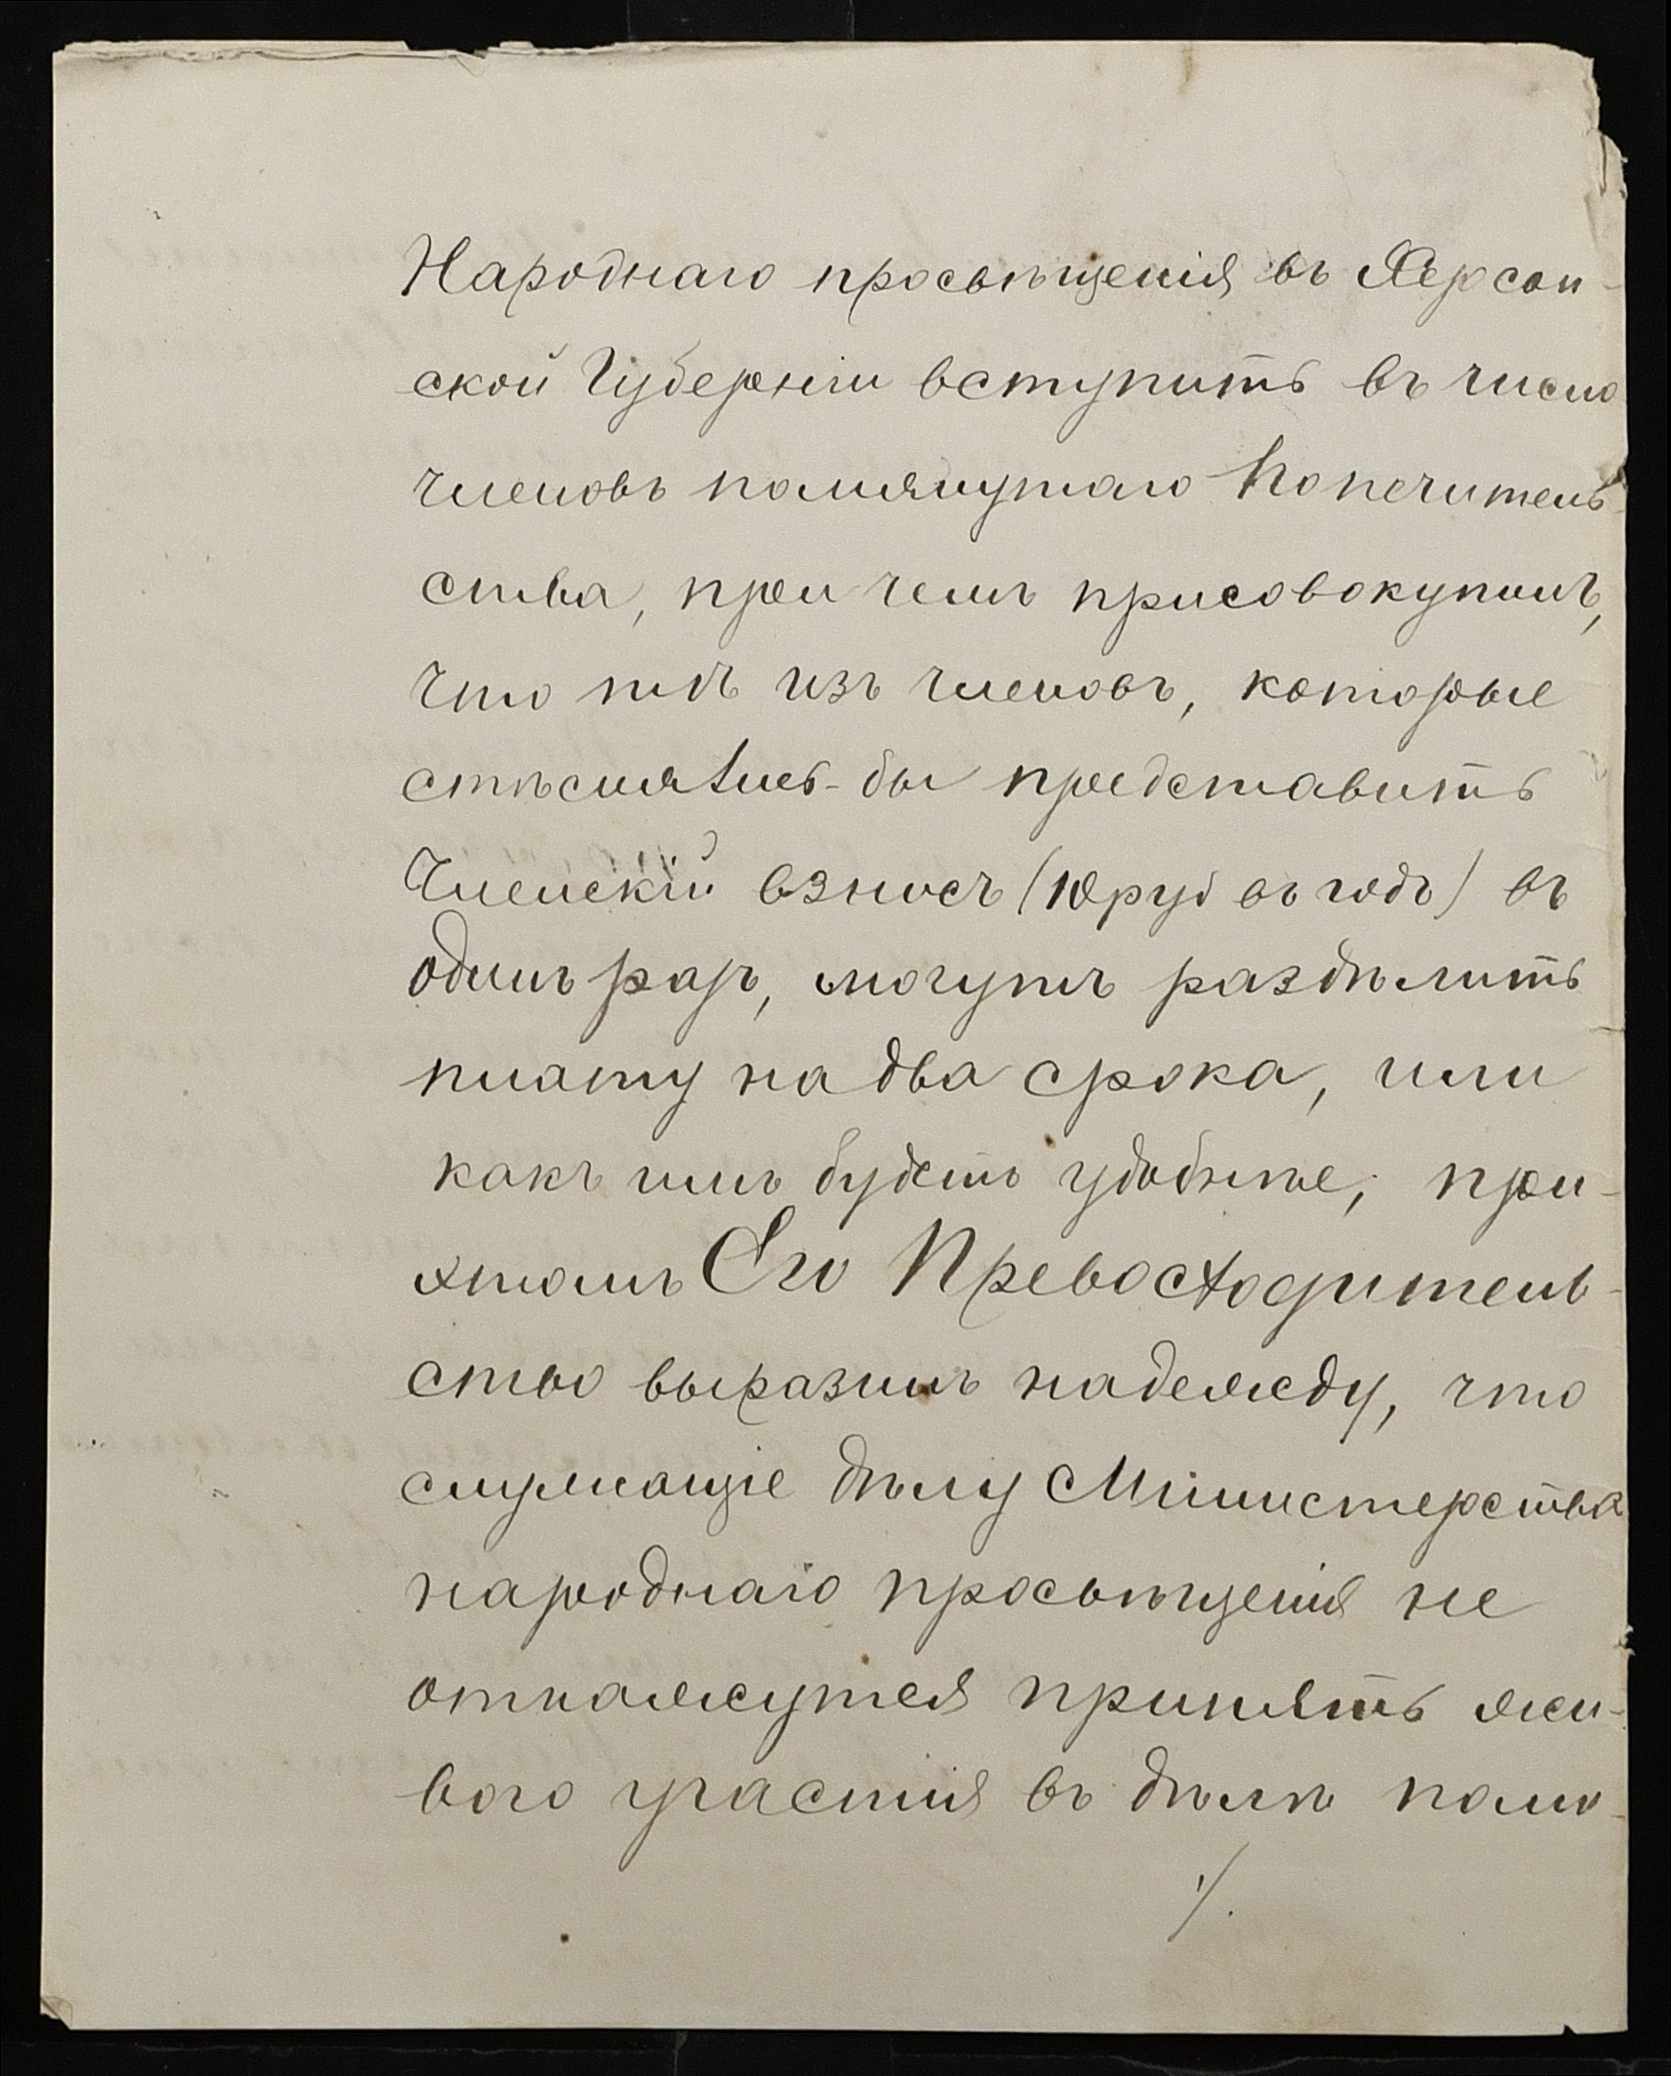 Народнаго просвѣщенія въ Херсон-
ской Губерніи вступить въ число
членовъ помянутаго Попечитель-
ства, при чемъ присовокупилъ,
что тѣ изъ членовъ, которые
стѣснялись-бы представить
Членскій взносъ (10 руб въ годъ) въ
одинъ разъ, могутъ раздѣлить
плату на два срока, или
какъ имъ будетъ удобнѣе, при-
этомъ Его Превосходитель-
ство выразилъ надежду, что
служащіе дѣлу Министерства
народнаго просвѣщенія не
откажутся принять жи-
вого участія въ дѣлѣ помо-
./.